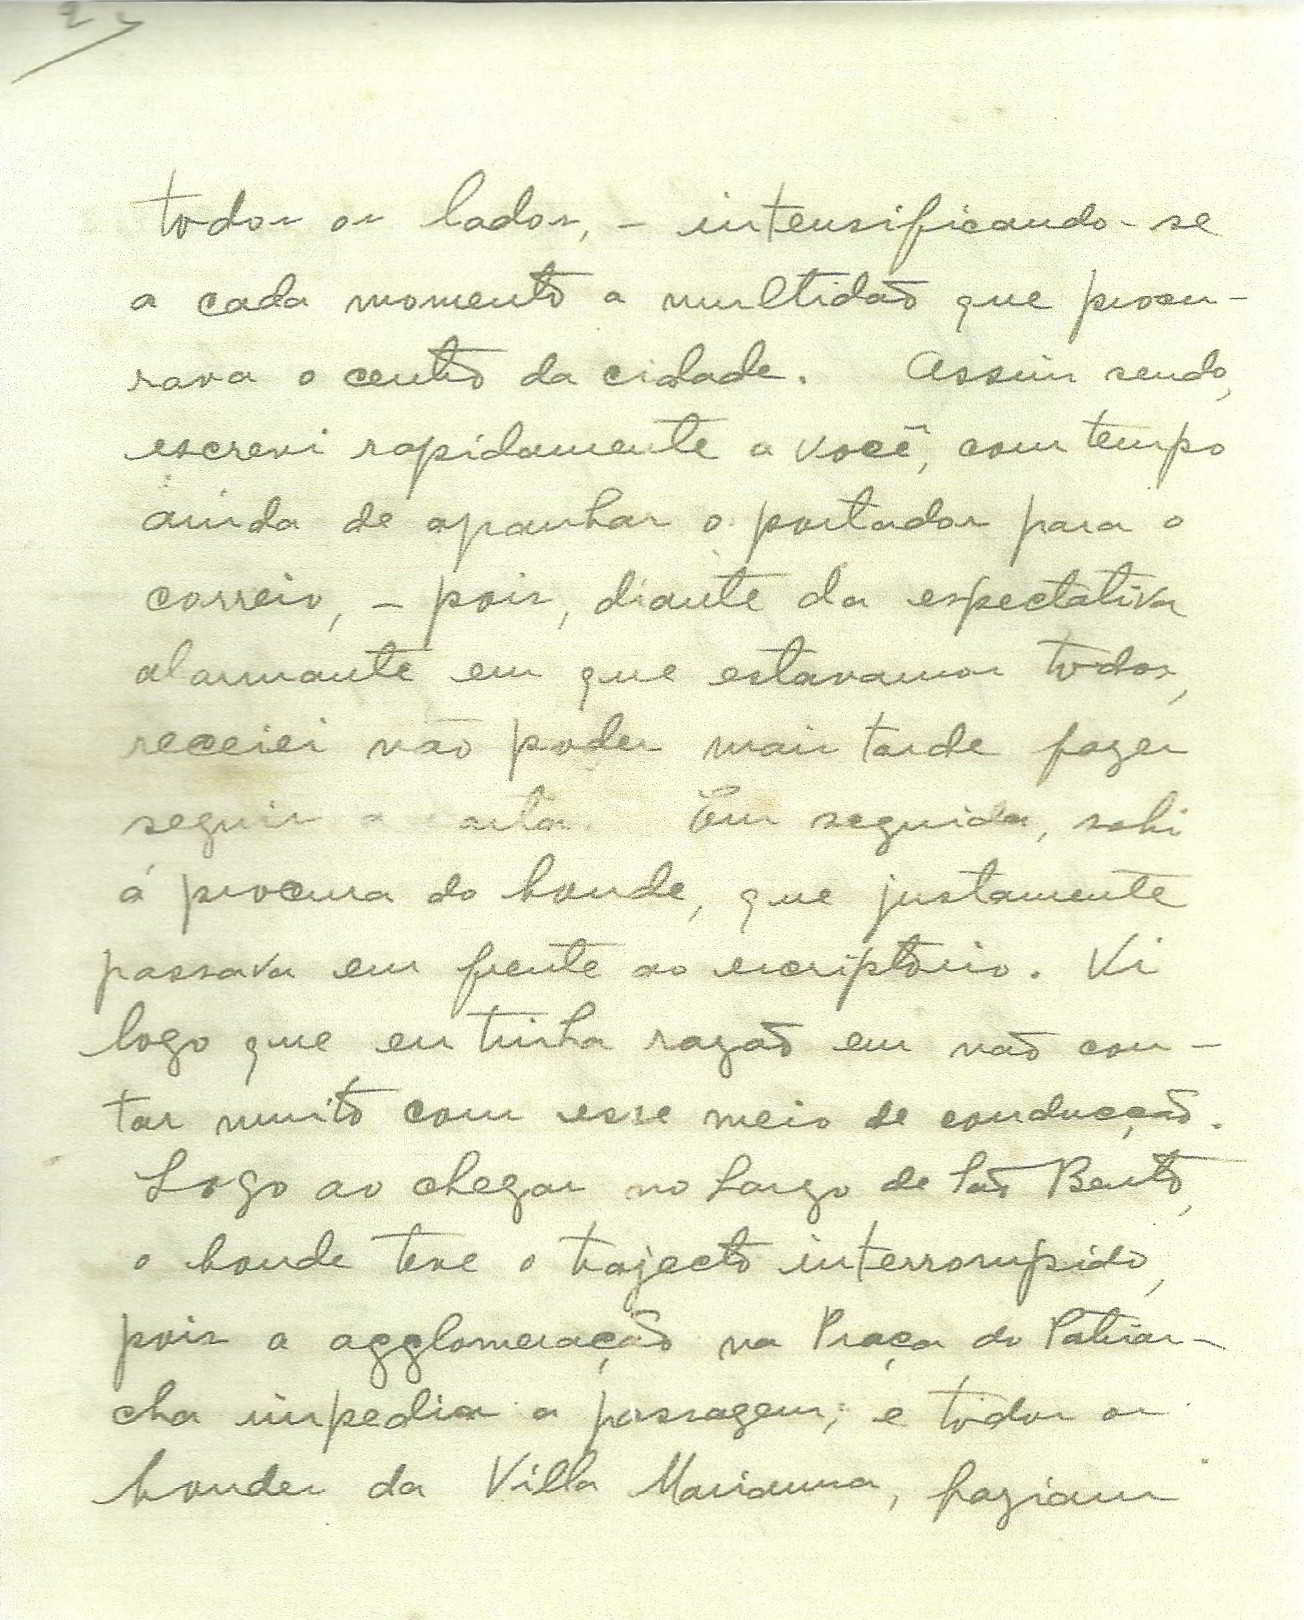 todos os lados, - intensificando-se
a cada momento a multidão que procu-
rava o centro da cidade. Assim sendo,
escrevi rapidamente a você, com tempo
ainda de apanhar o portador para o
correio, - pois, diante da espectativa
alarmante em que estavamos todos,
receiei não poder mais tarde fazer
seguir a carta. Em seguida, sahi
á procura do bonde, que justamente
passava em frente ao escriptorio. Vi
logo que eu tinha razão em não con-
tar muito com esse meio de conducção.
Logo ao chegar no Largo de São Bento,
o bonde teve o trajecto interrompido,
pois a agglomeração na Praça do Patriar-
cha impedia a passagem; e todos os
bondes da Villa Marianna, faziam